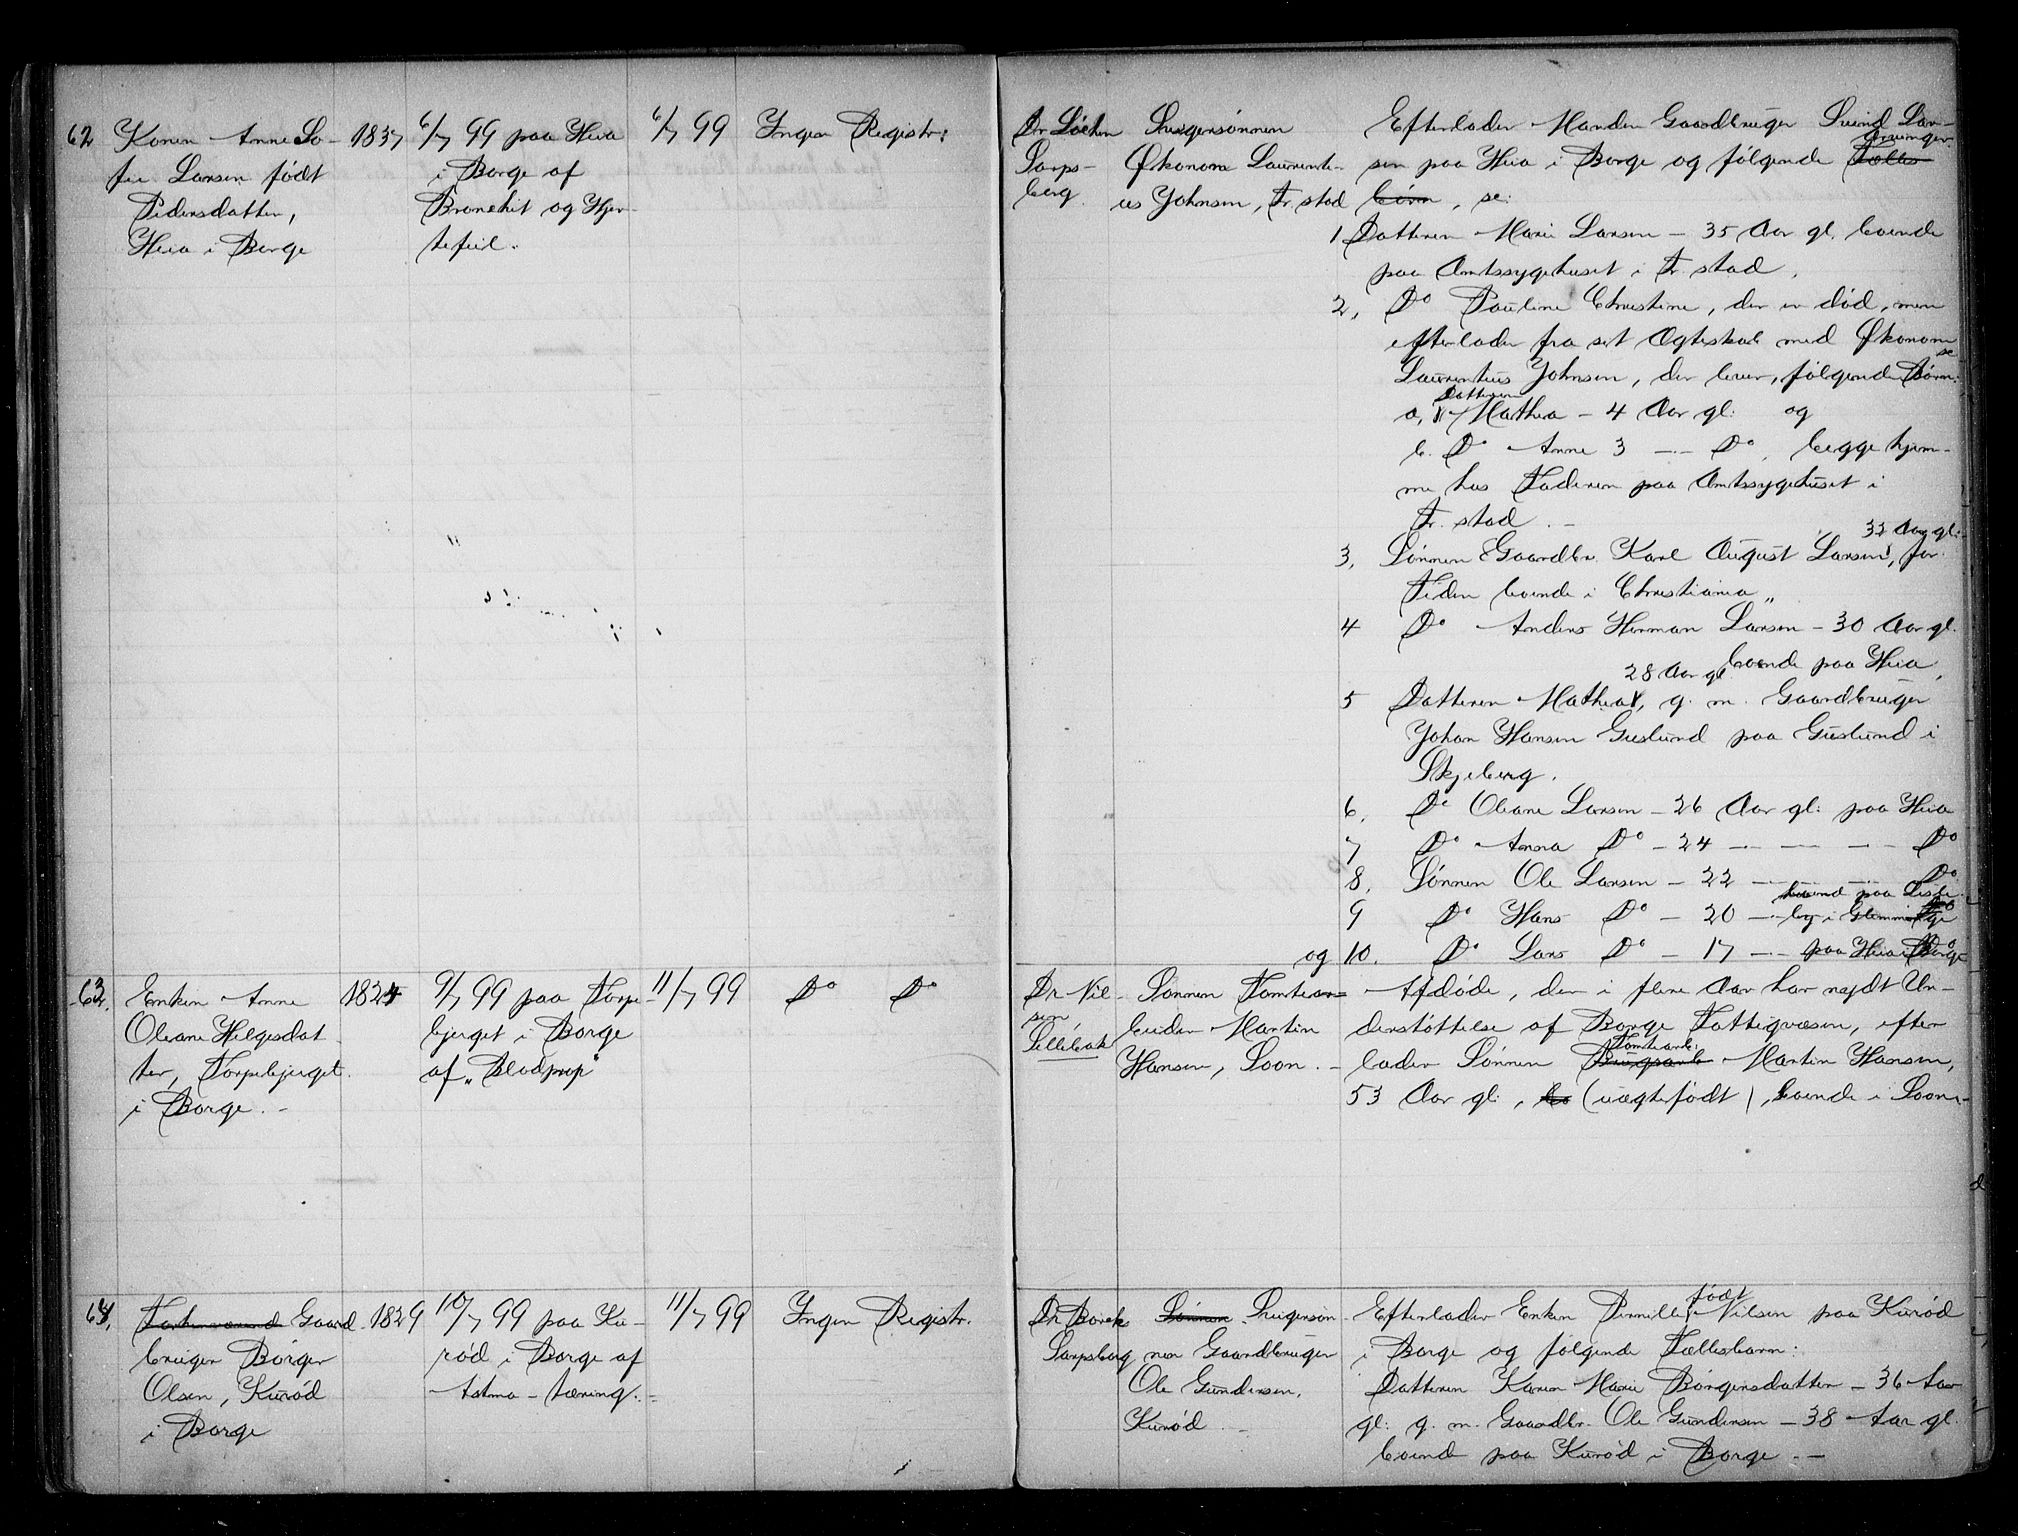 62
Konen Anne So-
fie Larsen født
Pedersdatter,
Hvia i Borge
1837
6/7 99 paa Hvia
i Borge af
Bronchit og Hjer-
tefeil.
6/7 99
Ingen Registr:
Dr Løchen
Sarps-
borg.
Svigersønnen
Økonom Laurenti-
us Johnsen, Fr.stad
Efterlader Manden Gaardbruger Svend Lar-
sen paa Hvia i Borge og følgende Fælles
Livsarvinger
børn, se:
1 Datteren Marie Larsen - 35 Aar gl. boende
paa Amtssygehuset i Fr.stad.
2, Do Pauline Christine, der er død, men
efterlader fra sit Ægteskab med Økonom
Laurentius Johnsen, der lever, følgende Børn: se
a, Datteren Mathea - 4 Aar gl: og
b. Do Anne 3 -"- Do, begge hjem-
me hos Faderen paa Amtssygehuset i
Fr. stad. -
3, Sønnen Gaardbr. Karl August Larsen, 32 Aar gl: for
Tiden boende i Christiania,,
4 Do Anders Herman Larsen - 30 Aar gl.
boende paa Hvia,
5 Datteren Mathea, 28 Aar gl. g. m. Gaardbruger
Johan Hansen Guslund paa Guslund i
Skjeberg.
6, Do Oleane Larsen - 26 Aar gl: paa Hvia
7 Do Anna Do - 24 -"- -"- Do
8, Sønnen Ole Larsen - 22 -"- -"- Do
9 Do Hans Do - 20 -"- boend paa Lisle-
by i Glemminge
og 10. Do Lars Do - 17 -"- paa Hvia i Borge
63,
Enken Anne
Oleane Helgesdat-
ter, Torpebjerget
i Borge. -
1824
9/7 99 paa Torpe-
bjerget i Borge
af "Blodprop"
11/7 99
Do Do
Dr Nil-
sen
Sellebak
Sønnen Tomtear-
beider Martin
Hansen, Soon. -
Afdøde, der i flere Aar har nydt Un-
derstøttelse af Borge Fattigvæsen, efter
lader Sønnen Brugsarb Tomtearb: Martin Hansen,
53 Aar gl:, bo (uægtefødt), boende i Soon. -
64,
Gaard-
bruger Børger
Olsen, Kurød
i Borge
1829
10/7 99 paa Ku-
rød i Borge af
Astma - tæring. -
11/7 99
Ingen Registr.
Dr Borch
Sarpsborg
Sønnen Svigersøn-
nen Gaardbruger
Ole Gundersen,
Kurød. -
Efterlader Enken Pernille født Nilsen paa Kurød
i Borge og følgende Fællesbarn:
Datteren Karen Marie Børgersdatter - 36 Aar
gl: g. m. Gaardbr. Ole Gundersen - 38 Aar gl.
boend paa Kurød i Borge. -